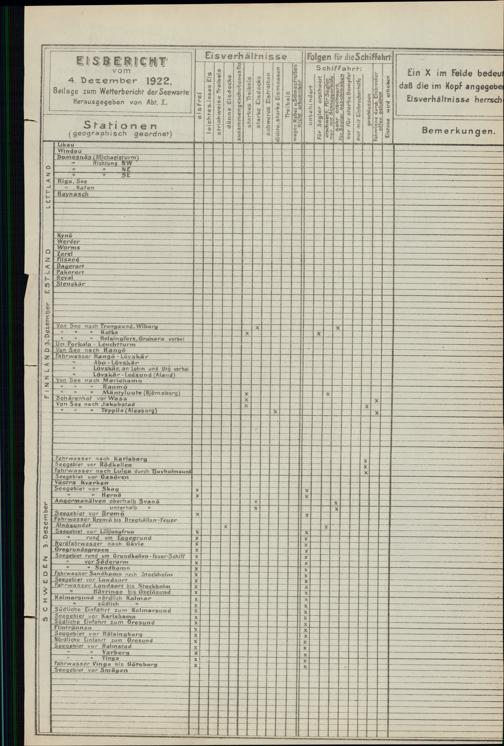 EISBERICHT
vom
4. Dezember 1922.
Beilage zum Wetterbericht der Seewarte
Herausgegeben von Abt. I.
Stationen
(geographisch geordnet)
Eisverhältnisse
Folgen für die Schiffahrt
Schiffahrt:
Ein X im Felde bedeu
daß die im Kopf angegeben
Eisverhältnisse herrsch
Bemerkungen.
eisfrei
leichtes loses Eis
dünne Eisdecke
starkes Treibeis
starke Eisdecke
Treibeis
unbehindert
geschlossen
LETTLAND
Libau
Windau
Richtung NW
" NE
" SE
Riga, See
" Hafen
Haynasch
ESTLAND
Kynö
Werder
Worms
Zerel
Filsand
Dagerort
Pakerort
Reval
Stenskär
FINNLAND 3. Dezember
Von See nach Trangsund, Wiborg
" " " Kotka
" " " Helsingfors, Grahara vorbei
Um Porkala-Leuchtturm
Von See nach Hangö
Fahrwasser Hangö-Lövskär
" Åbo-Lövskär
" Lövskär-Ledsund (Åland)
Von See nach Mariehamn
" " " Raumo
" " " Mäntyluoto (Björneborg)
Schärenhof vor Wasa
Von See nach Jakobstad
" " " Toppila (Uleaborg)
SCHWEDEN 3. Dezember
Fahrwasser nach Karlsborg
Seegebiet vor Rödkallen
Fahrwasser nach Lulea durch Tjuvholmsund
Seegebiet vor Gasören
Västra Kvarken
Seegebiet vor Skag
" " Hernö
Angermanälven oberhalb Svanö
" unterhalb "
Seegebiet vor Bremö
Fahrwasser Bremö bis Draghällan-Feuer
Alnösundet
" rund um Eggegrund
Nordfahrwasser nach Gävle
Oregrundsgrepen
Seegebiet rund um Grundkallen-Feuer-Schiff
" vor Söderarm
" " Sandhamn
Fahrwasser Sandhamn nach Stockholm
Seegebiet vor Landsort
Fahrwasser Landsort bis Stockholm
" Hävringe bis Oxelösund
Kalmarsund nördlich Kalmar
" südlich "
Südliche Einfahrt zum Kalmarsund
Seegebiet vor Karlshamn
Südliche Einfahrt zum Oresund
Flintrännan
Seegebiet vor Hälsingborg
Nördliche Einfahrt zum Oresund
Seegebiet vor Halmstad
" " Varberg
" " Vinga
Fahrwasser Vinga bis Göteborg
Seegebiet vor Smögen